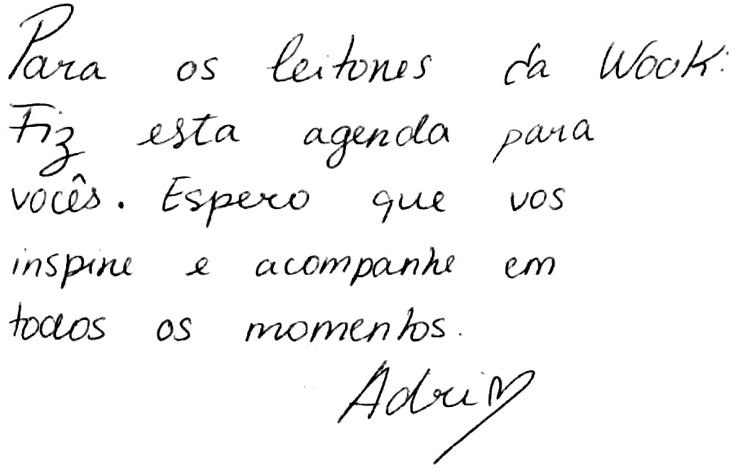 Para os leitores da Wook:
Fiz esta agenda para
vocês. Espero que vos
inspire e acompanhe em
todos os momentos.
Adri♡